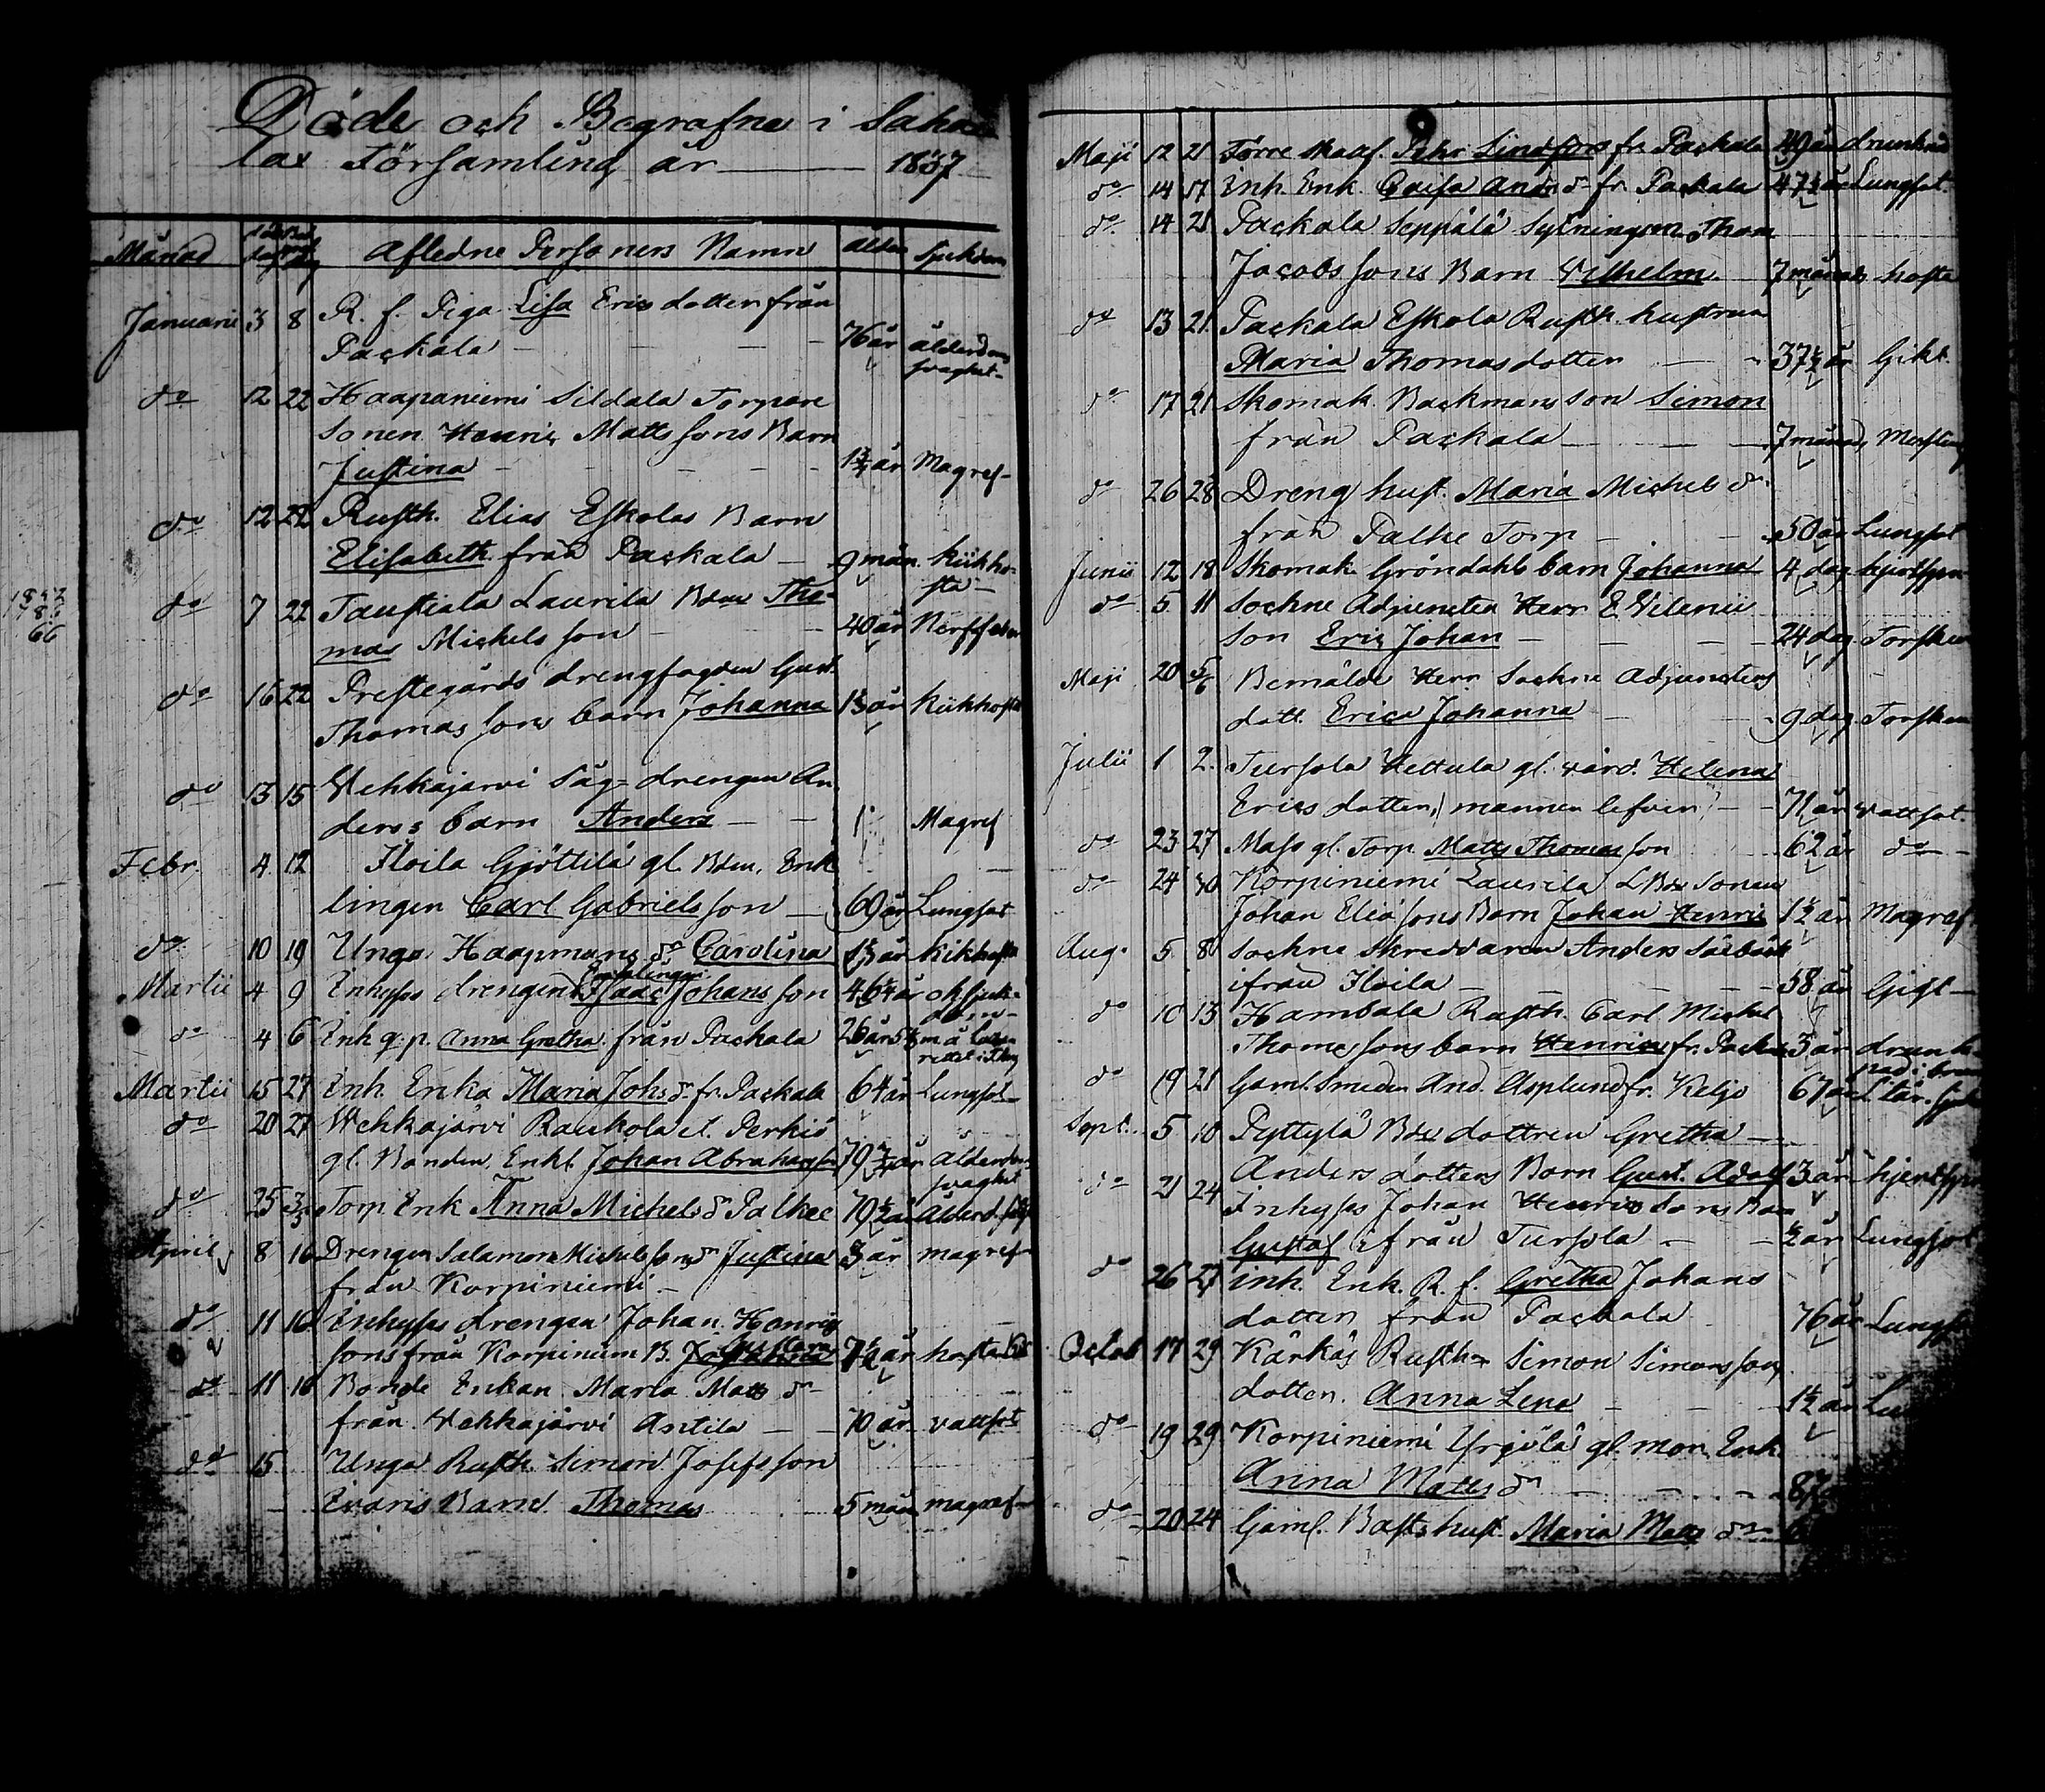 Döde och Begrafne i Saha
lax Församling år 1837
Månad Afledne Personers Namn ålder Sjukdom
Januari 3 8 R. f. Piga Lisa Ericsdotter från
Packala 76 år ålderdoms
svaghet
do 12 22 Haapaniemi Sildala Torpare
sonen Henric Mattssons Barn
Justina år Magref
do 12 22 Rusth. Elias Eskolas Barn
Elisabeth från Packala 9 mån. kikho-
sta
do 7 22 Taustiala Laurila Bden Tho-
mas Michelsson 40 år Nerffeber
do 16 22 Prestegårds drengfogden Gust.
Thomas sons barn Johanna år kikhosta
do 13 15 Wehkajärvi Såg-drengen An
derss barn Anders 1 Magref
Febr. 4 12 Iloila Gjöttilä gl. Bden, Enk
lingen Carl Gabrielsson 69 år Lungsot
do 10 19 Unga Haapmans dr Carolina år kikhosta
Martii 4 9 Inhyses drengen Enklingen Isaac Johansson 46 1/4 år ok. sjuk-
dom
do 4 6 Inh q.p. Anna Gretha från Packala 26 år
Martii 15 27 Inh. Enka Maria Johs dr fr. Packala 64 år Lungsot
do 20 27 Wehkajärvi Rauskola et Perkiö
gl. Bonden, Enkl. Johan Abrahamsson 79 år Ålderdoms
svaghet
do 25 Torp Enk Anna Michels dr Palkee 79 1/2 år Ålderd.
April 8 16 Drengen Salamon Michelssons dr Justina år magref
från Korpiniemi
do 11 16 Inhyses drengen Johan Henrics
sons från Korpiniem B. Gustava år hosta
do 11 16 Bonde Enkan Maria Matts dr
från Wehkajärvi Antila 70 år vattsot
do 15 Unga Rusth. Simon Josefsson
Barn Thomas 5 mån magref
Maji 12 21 Förre skaf. Pehr Lindfors fr. Packala 49 år drunknad
do 14 Inh. Enk. Caisa And. dr fr. Packala 47 1/2 år Lungsot
do 14 21 Packala Seppälä Sytningsm. Thom
Jacobssons Barn Wilhelm 7 månad hosta
do 13 21 Packala Eskola Rusth. hustrun
Maria Thomasdotter 37 1/2 år Gikt
do 17 21 Skomak. Backmans son Simon
från Packala 7 månad, Mässling
do 26 28 Dreng hust. Maria Michels dr
från Palke Torp 50 år Lungsot
Junii 12 18 Skomak. Gröndahls barn Johanna 4 dag
do 5 11 Sockne Adjuncten Herr E. Vilenii
son Eric Johan 24 dag Torsken
Maji 20 Bemälde Herr Sockne Adjunctens
dott. Erica Johanna 9 dag Torsken
Julii 1 2 Tursola Hettula gl. värd. Helena
Ericsdotter, mannen lefver 71 år vattsot
do 23 27 Mass gl. Torp. Matts Thomasson 62 år do
do 24 30 Korpiniemi Laurila LBde Sonen
Johan Eliäsons Barn Johan Henric 1 1/2 år Magref
Aug. 5 8 Sockne Skreddaren Anders
ifrån Iloila 58 år Gigt
do 10 13 Hambala Rusth. Carl Michel
Thomassons barn Henric fr. Packa 3 år drunk-
nad i brun
do 19 21 Gaml. Smeden And. Asplund fr. Keljo 67 år
Sept. 5 10 Pyttylä Bde dottren Gretha
Anders dotters Barn Gust. Adolf 3 år
do 21 24 Inhyses Johan Henricsons Barn
Gustaf ifrån Tursola 1/2 år Lungsot
do 26 27 inh. Enk. R. f. Gretha Johans
dotter från Packala 76 år Lungso
Octob 17 29 Kärkäs Rusth. Simon Simonssons
dotter Anna Lena 1 1/2 år
do 19 29 Korpiniemi Yrjölä gl. mor Enk.
Anna Matts dr 87
do 20 24 Gaml. Basts hust. Maria Matts dr